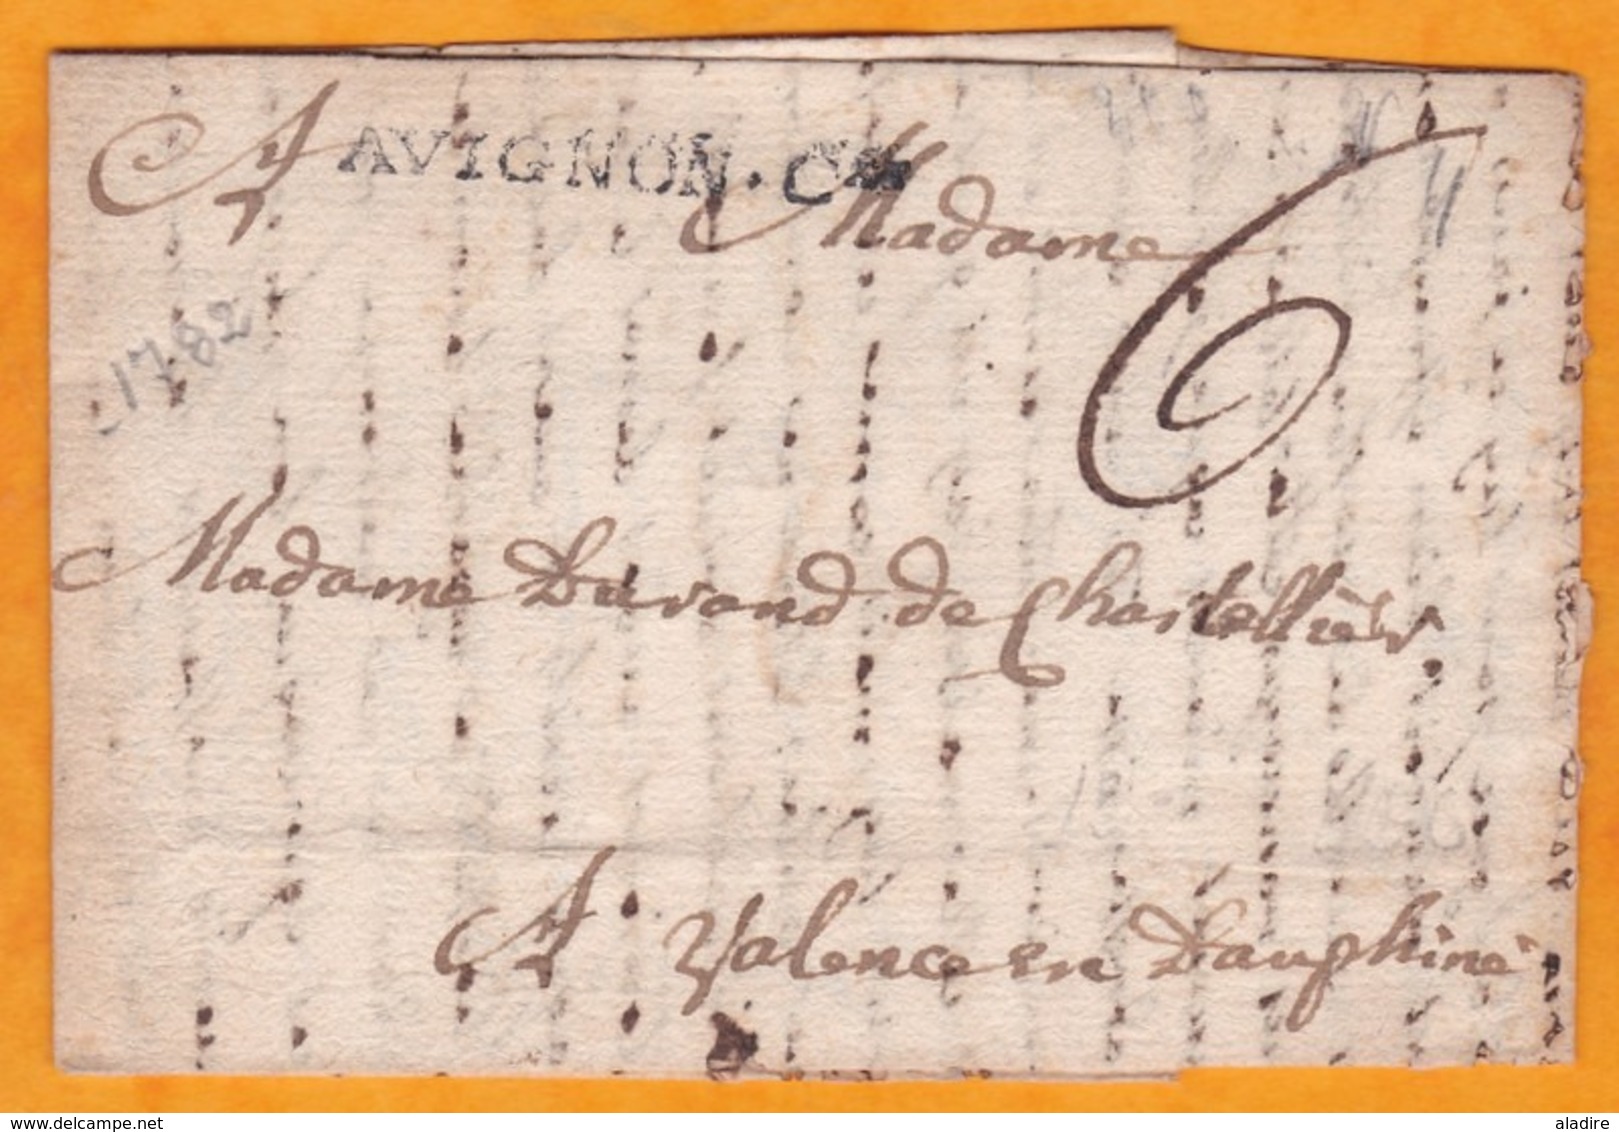 A AVIGNON.
Madame
6
1782
Madame Durand de Chastellièr,
A Valence en Dauphiné
www.delcampe.net
aladire